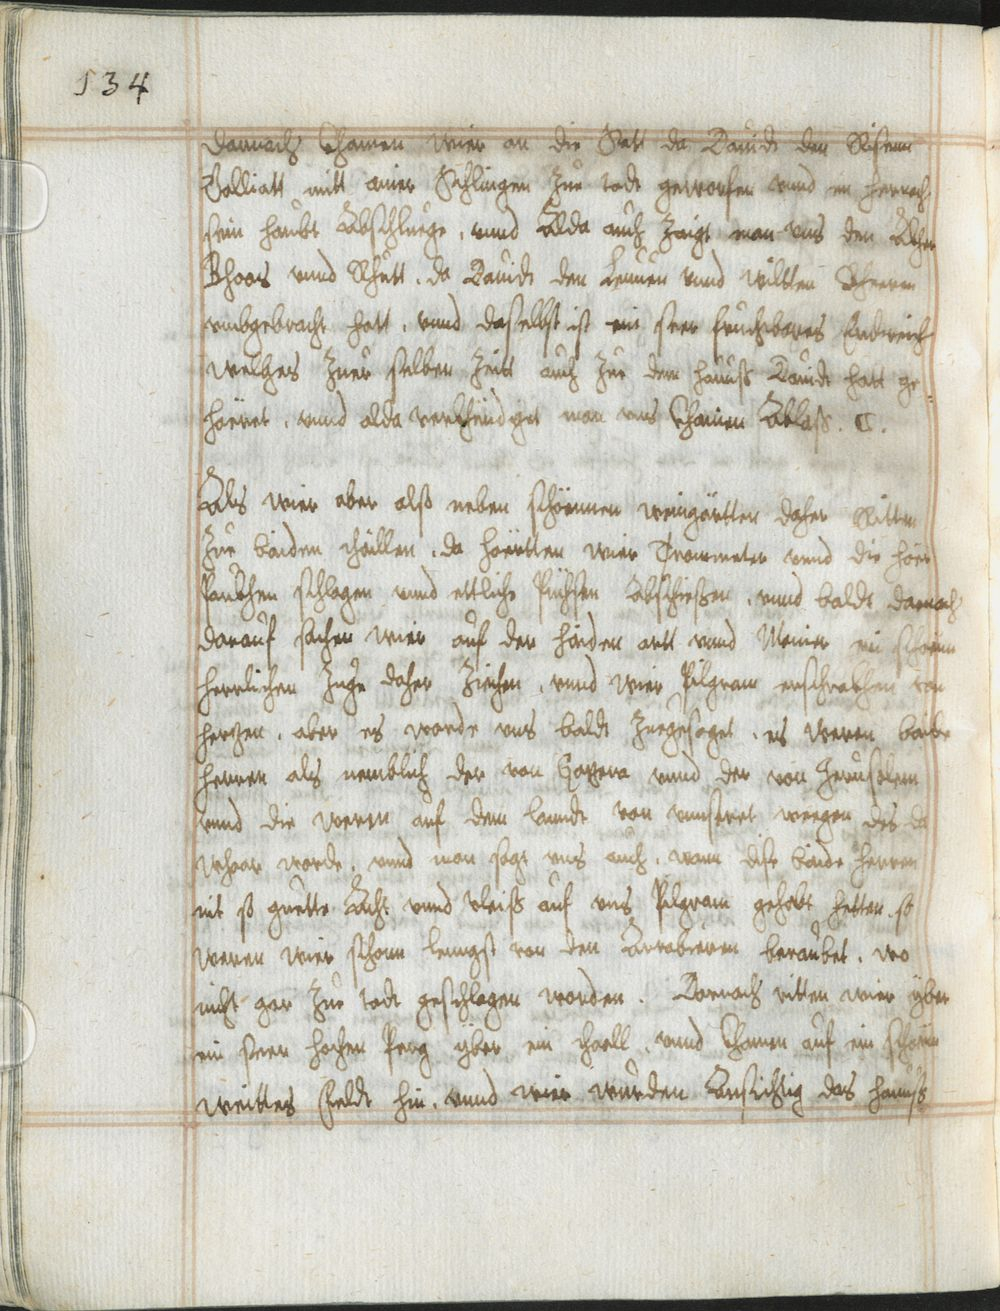 134
Darnach Khamen wier an die Statt da Dauidt den Risenn
Golliatt mitt ainer Schlingen zue todt geworfen vnnd im hernach
sein haubt Abschluege, vnnd Alda auch zaigt man vns den Ackher
Bhoas vnnd Rhutt. da Dauidt den Leuuen vnnd willten Pheeren
vmbgebracht hatt, vnnd daselbst ist ein seer fruchtbares Erdtreich
welches zuer selben Zeitt auch zue dem hauß Dauidt hatt ge=
hörret, vnnd alda verkhündiget man vns Khainen Ablaß. C.
Als wier aber alß neben schönnen weingärtten daher Ritten
zue baiden thällen, da hörtten wier Trommeter vnnd die hör
Paukhen schlagen vnnd ettliche Püchsen Abschießen, vnnd baldt darnach
darauf sachen wier auf der haiden artt vnnd Manier ein schönn
herrlichen Zuge daher Ziechen, vnnd wier Pilgram erschrakhen von
hertzen, aber es worde vns baldt zuegesaget, es weren baide
herren als nemblich der von Gazera vnnd der von Jerusalem
vnnd die weren auf dem lanndt von vnnseret weegen des da
whaar worde, vnnd man sagt vns auch, wann dise baide herren
nit so guette Acht vnnd vleiß auf vns Pilgram gehabt hetten, so
weren wier schonn lengst von den Arraberen beraubet, wo
nicht gar zue todt geschlagen worden. Darnach ritten wier yber
ein seer hochen Perg yber ein thaall, vnnd Khamen auf ein schönn
weittes Feldt hin, vnnd wier wurden Ansichtig das hauß